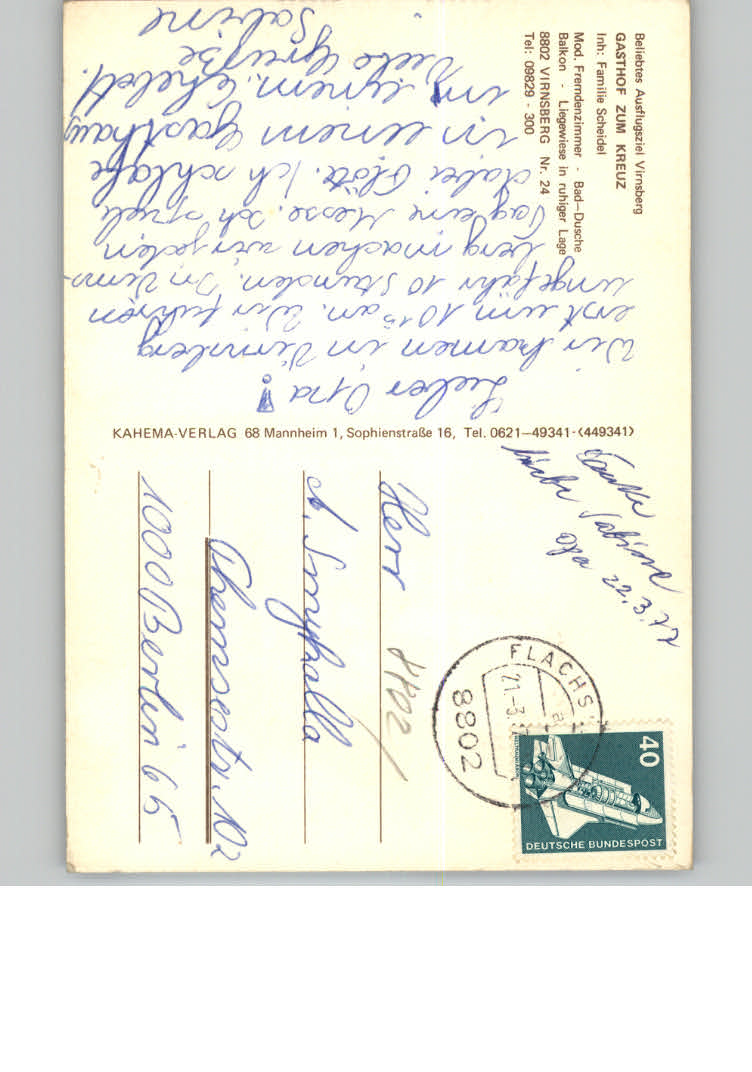 Beliebtes Ausflugsziel Virnsberg
GASTHOF ZUM KREUZ
Inh: Familie Scheidel
Mod. Fremdenzimmer - Bad-Dusche
Balkon - Liegewiese in ruhiger Lage
8802 VIRNSBERG Nr. 24
Tel: 09829 - 300
Lieber Opa!
Wir kamen in Virnsberg
erst um 10¹⁵ an. Wir fuhren
ungefähr 10 Stunden. In Virns-
berg machen wir jeden
Tag eine Messe. Ich spiele
dabei Flöte. Ich schlafe
in einem Gasthaus
in einem
Viele Grüße
Sabine
KAHEMA-VERLAG 68 Mannheim 1, Sophienstraße 16, Tel. 0621-49341-(449341)
Danke
liebe Sabine
Opa 22.3.77
Herr
A.
10²
1000 Berlin 65
8802
FLACHS
21.-3.
8802
40
DEUTSCHE BUNDESPOST